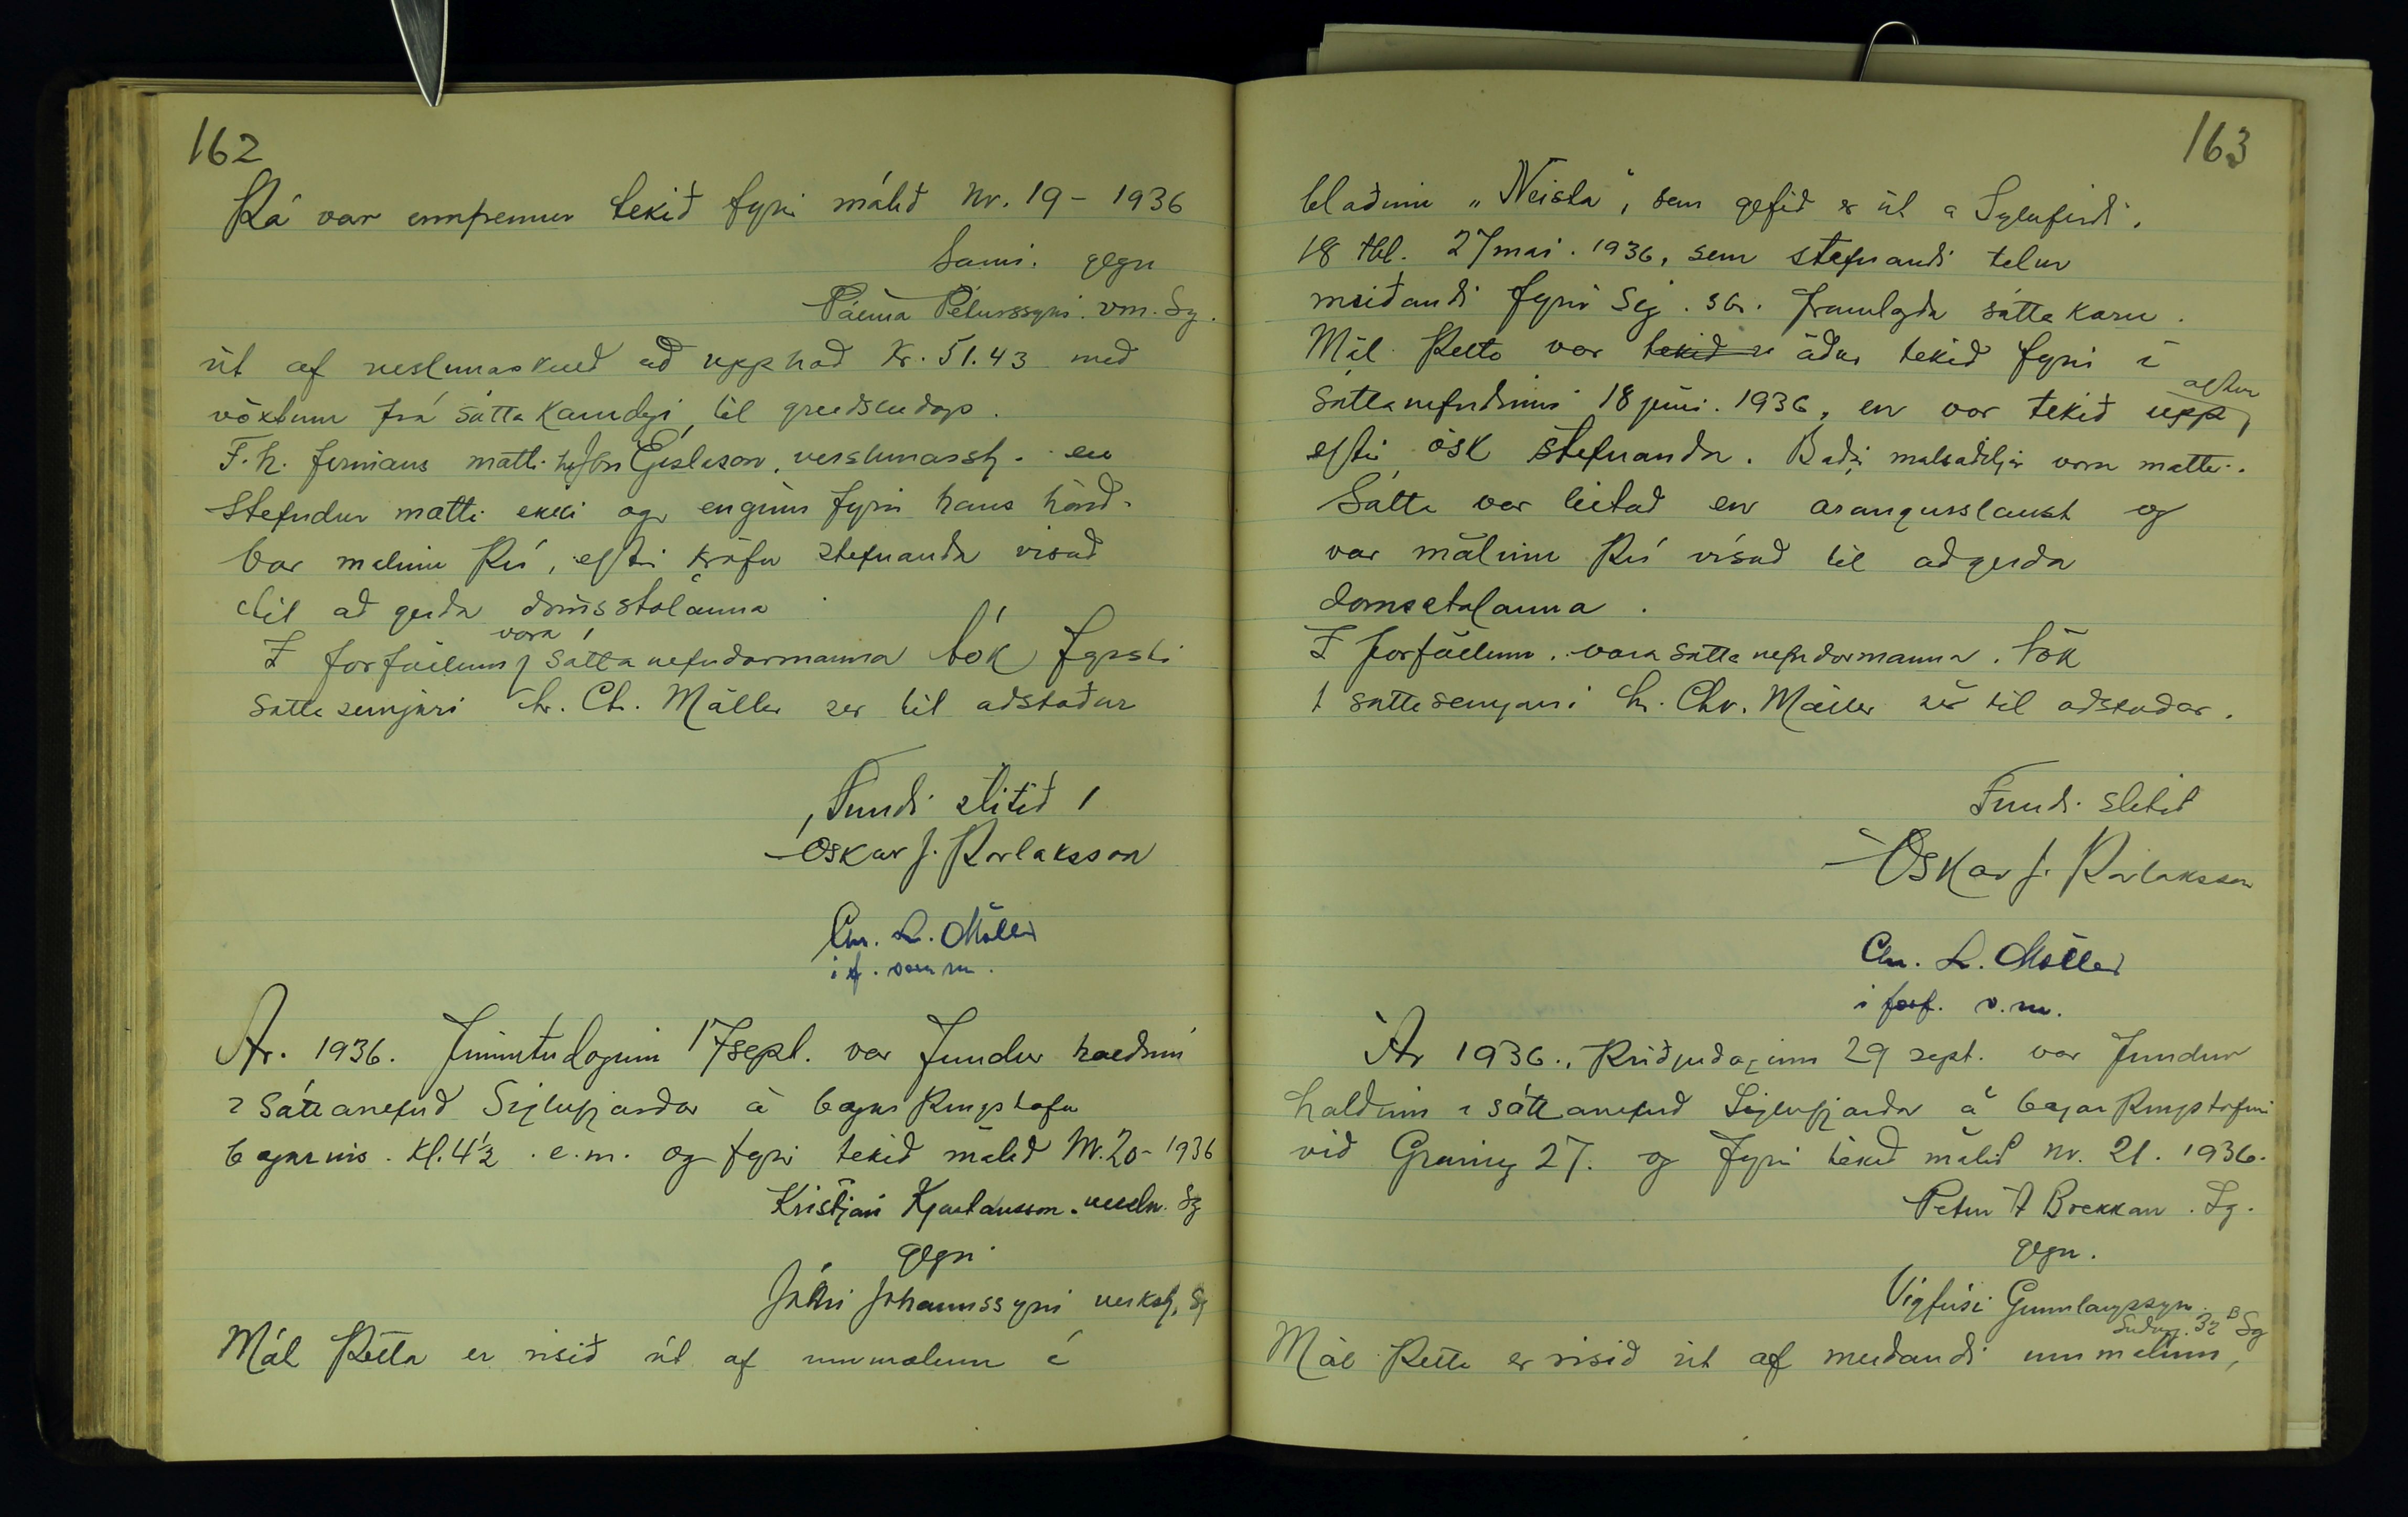 162
Þá var ennfremur tekið fyrir málið nr. 19 - 1936
Sami. gegn
Pálma Péturssyni. vm. Sg.
út af verslunarskuld að upphæð kr. 51.43 með
vöxtum frá sáttakærudegi til greiðsludags.
F. h. firmans mætti Gíslason, verslunarstj. en
Stefndur mætti ekki og enginn fyrir hans hönd.
Var málinu því, eftir kröfu stefnanda vísað
til aðgerða dómsstólanna
Í forföllum vara sáttanefndarmanna tók fyrsti
sáttasemjari hr. Ch. Möller sér til aðstoðar
Fundi slitið
Óskar J. Þorláksson
Chr. L. Möller
í f. varam.
Ár. 1936. Fimmtudaginn 17 sept. var fundur haldinn
í Sáttanefnd Siglufjarðar á bæjarþingstofu
bæjarins. kl. 4½ . e.m. og fyrir tekið málið Nr. 20 - 1936
Kristján Kjartansson. verslm. Sg
gegn
Jóhannssyni verkstj. Sg
Mál þetta er risið út af ummælum í
163
blaðinu „Neista“, sem gefið er út á Siglufirði.
18 tbl. 27 maí. 1936, sem stefnandi telur
meiðandi fyrir sig. sbr. framlagða sáttakæru.
Mál þetta var tekið áður tekið fyrir í
sáttanefndinni 18 júní. 1936, en var tekið upp aftur
eftir ósk stefnanda. Báðir málsaðiljar voru mættir.
Sátta var leitað en árangurslaust og
var málinu því vísað til aðgerða
dómsstólanna.
Í forföllum. vara sáttanefndarmanna. tók
1 sáttasemjari hr. Chr. Möller sér til aðstoðar.
Fundi slitið
Óskar J. Þorláksson
Chr. L. Möller
í forf. v.m.
Ár 1936., Þriðjudaginn 29 sept. var fundur
haldinn í sáttanefnd Siglufjarðar á bæjarþingstofunni
við Gránug 27. og fyrir tekið málið nr. 21. 1936.
Petur A Brekkan. Sg.
gegn.
Vigfúsi Gunnlaugssyni.
Suðurg. 32 B Sg
Mál þetta er risið út af meiðandi ummælum,